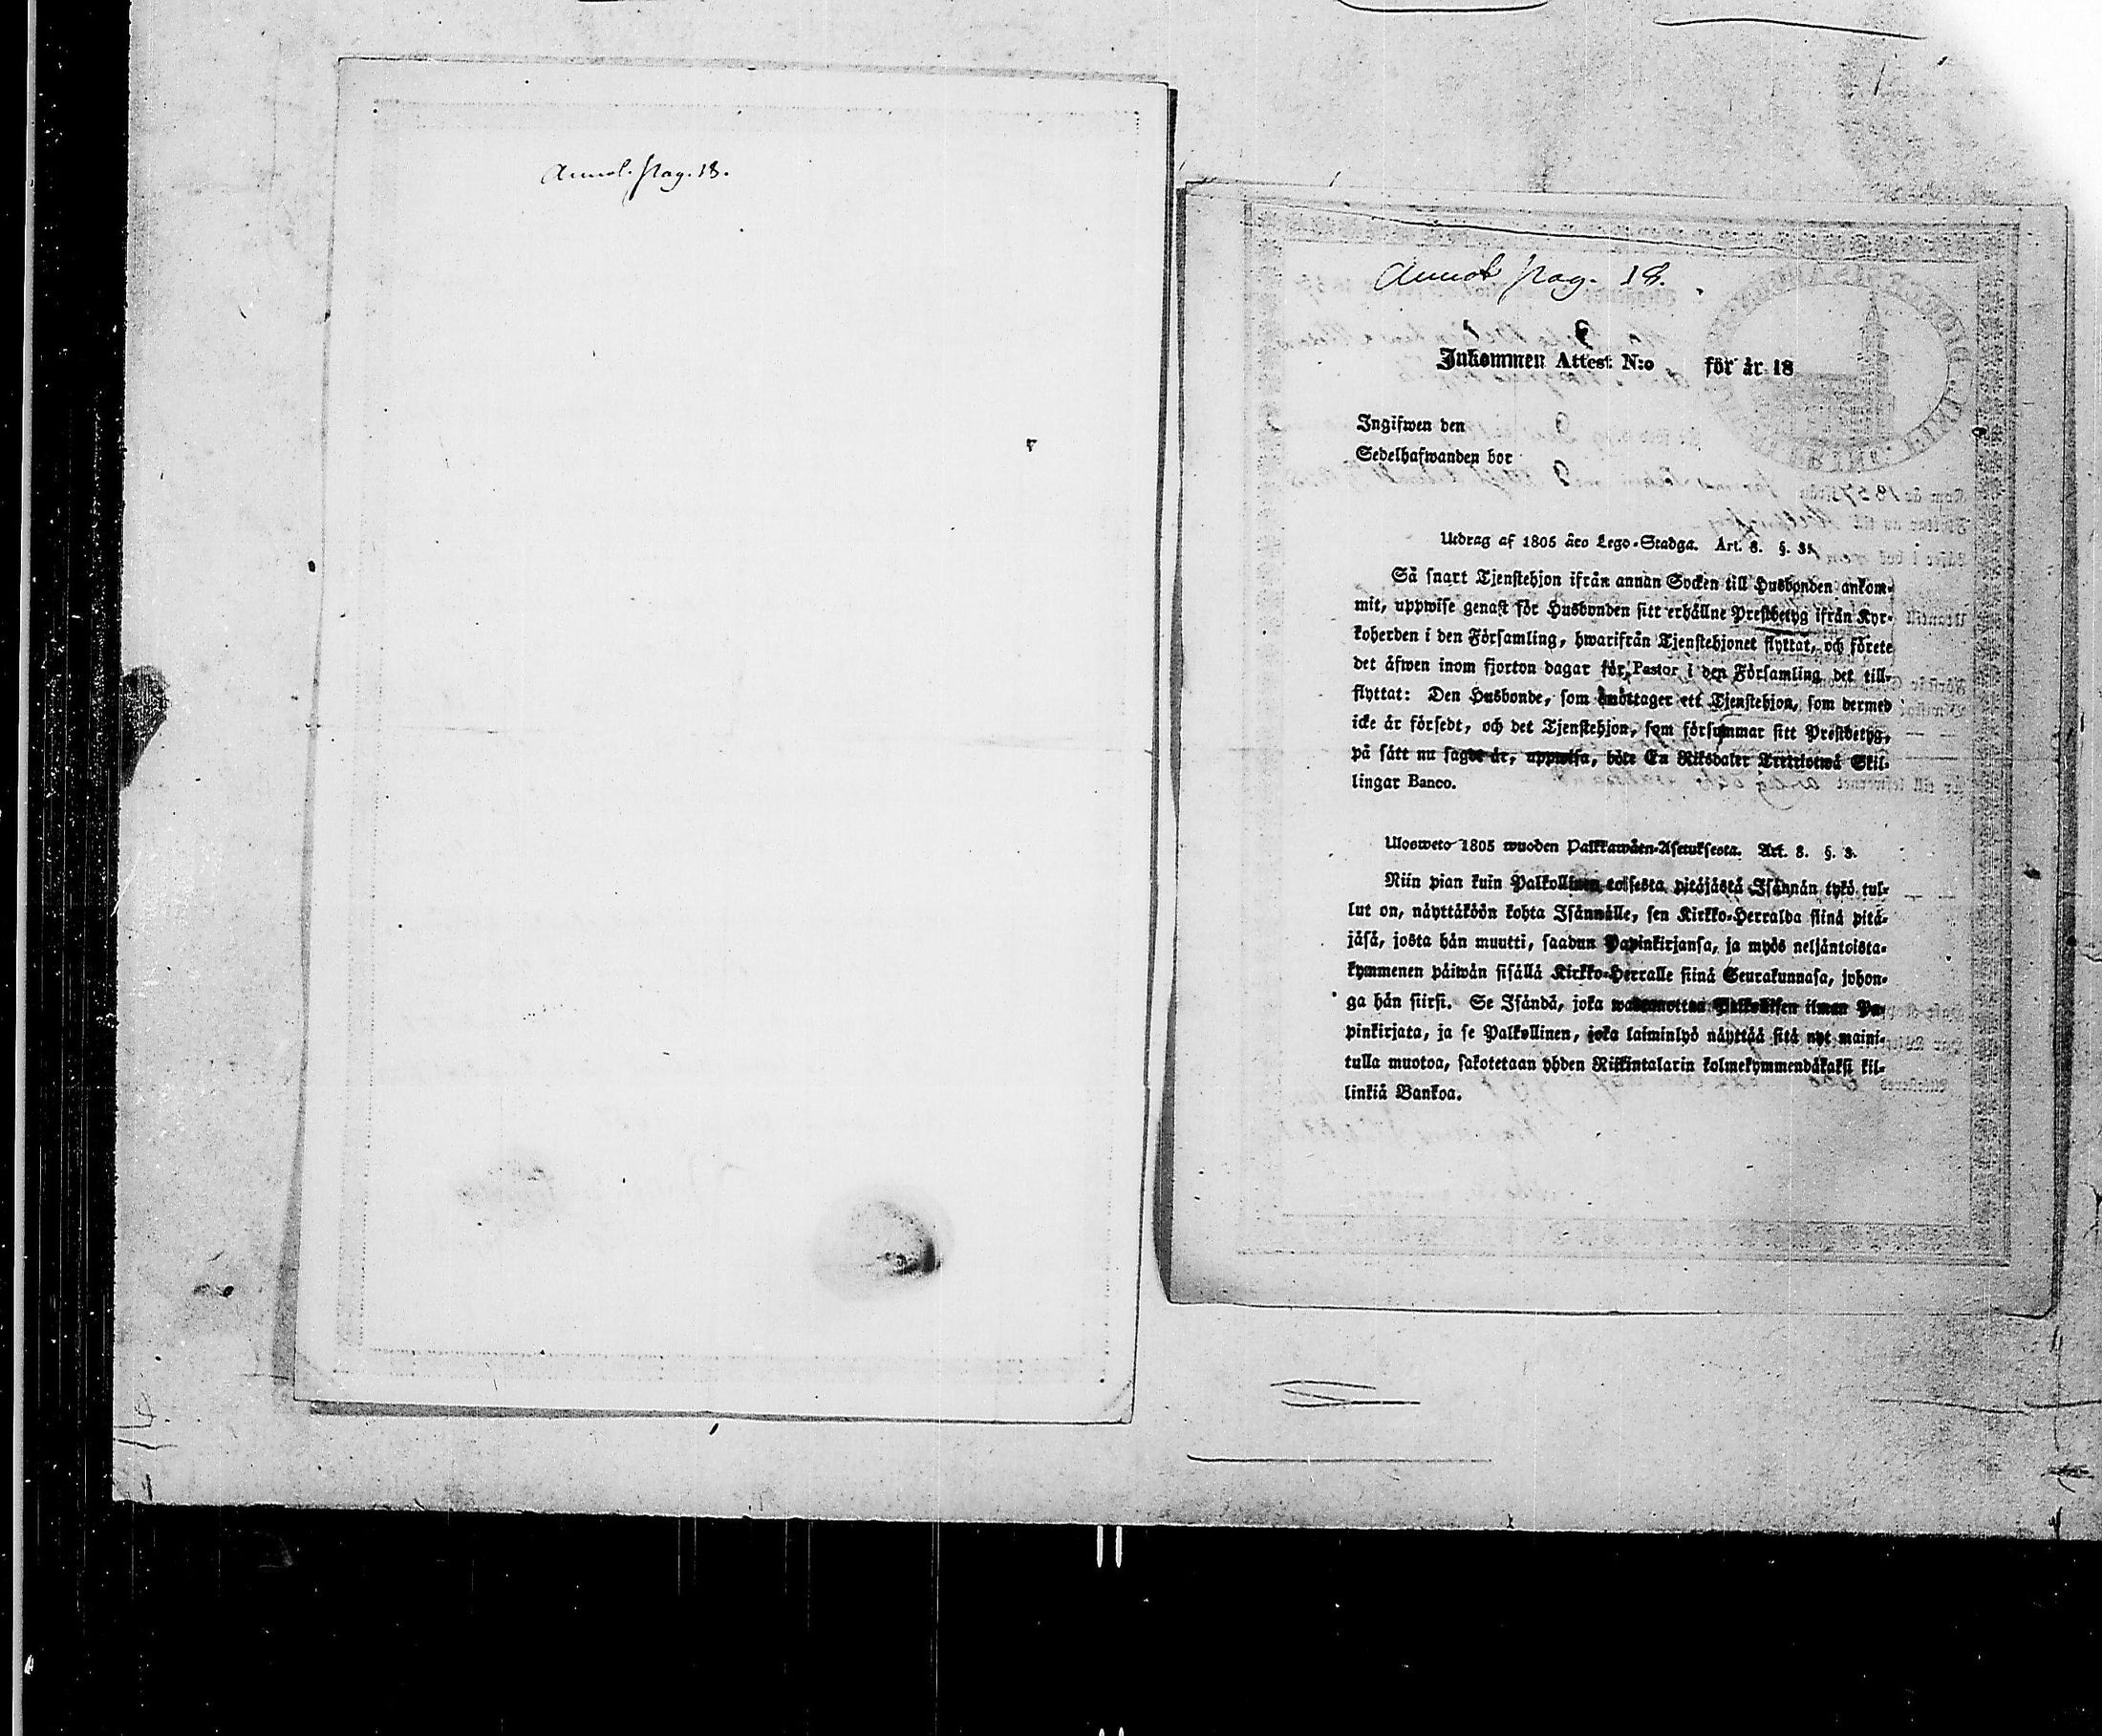 Annot. pag. 18.
Annot pag. 18.
Inkommen Attest N:o för år 18
Ingifwen den
Sedelhafwanden bor
Utdrag af 1805 års Lego-Stadga. Art. 8. §. 3.
Så snart Tjenstehjon ifrån annan Socken till Husbonden ankom-
mit, uppwise genast för Husbonden sitt erhållne Prestbetyg ifrån Kyr-
koherden i den Församling, hwarifrån Tjenstehjonet flyttat, och förete
det äfwen inom fjorton dagar för Pastor i den Församling det till-
flyttat: Den Husbonde, som emottager ett Tjenstehjon, som dermed
icke är försedt, och det Tjenstehjon, som försummar sitt Prestbetyg,
på sätt nu sagdt är, uppwisa, böte En Riksdaler Trettiotwå Skil-
lingar Banco.
Uloswеto 1805 wuoden Palkkawäen-Asetuksesta. Art. 8. §. 3.
Niin pian kuin Palkollinen toisesta pitäjästä Isännän tykö tul-
lut on, näyttäköön kohta Isännälle, sen Kirkko-Herralda siinä pitä-
jäsä, josta hän muutti, saadun Papinkirjansa, ja myös neljäntoista-
kymmenen päiwän sisällä Kirkko-Herralle siinä Seurakunnasa, johon-
ga hän siirsi. Se Isändä, joka wastanottaa Palkollisen ilman Pa-
pinkirjata, ja se Palkollinen, joka laiminlyö näyttää sitä nyt maini-
tulla muotoa, sakotetaan yhden Riikintalarin kolmekymmendäkaksi kil-
linkiä Bankoa.